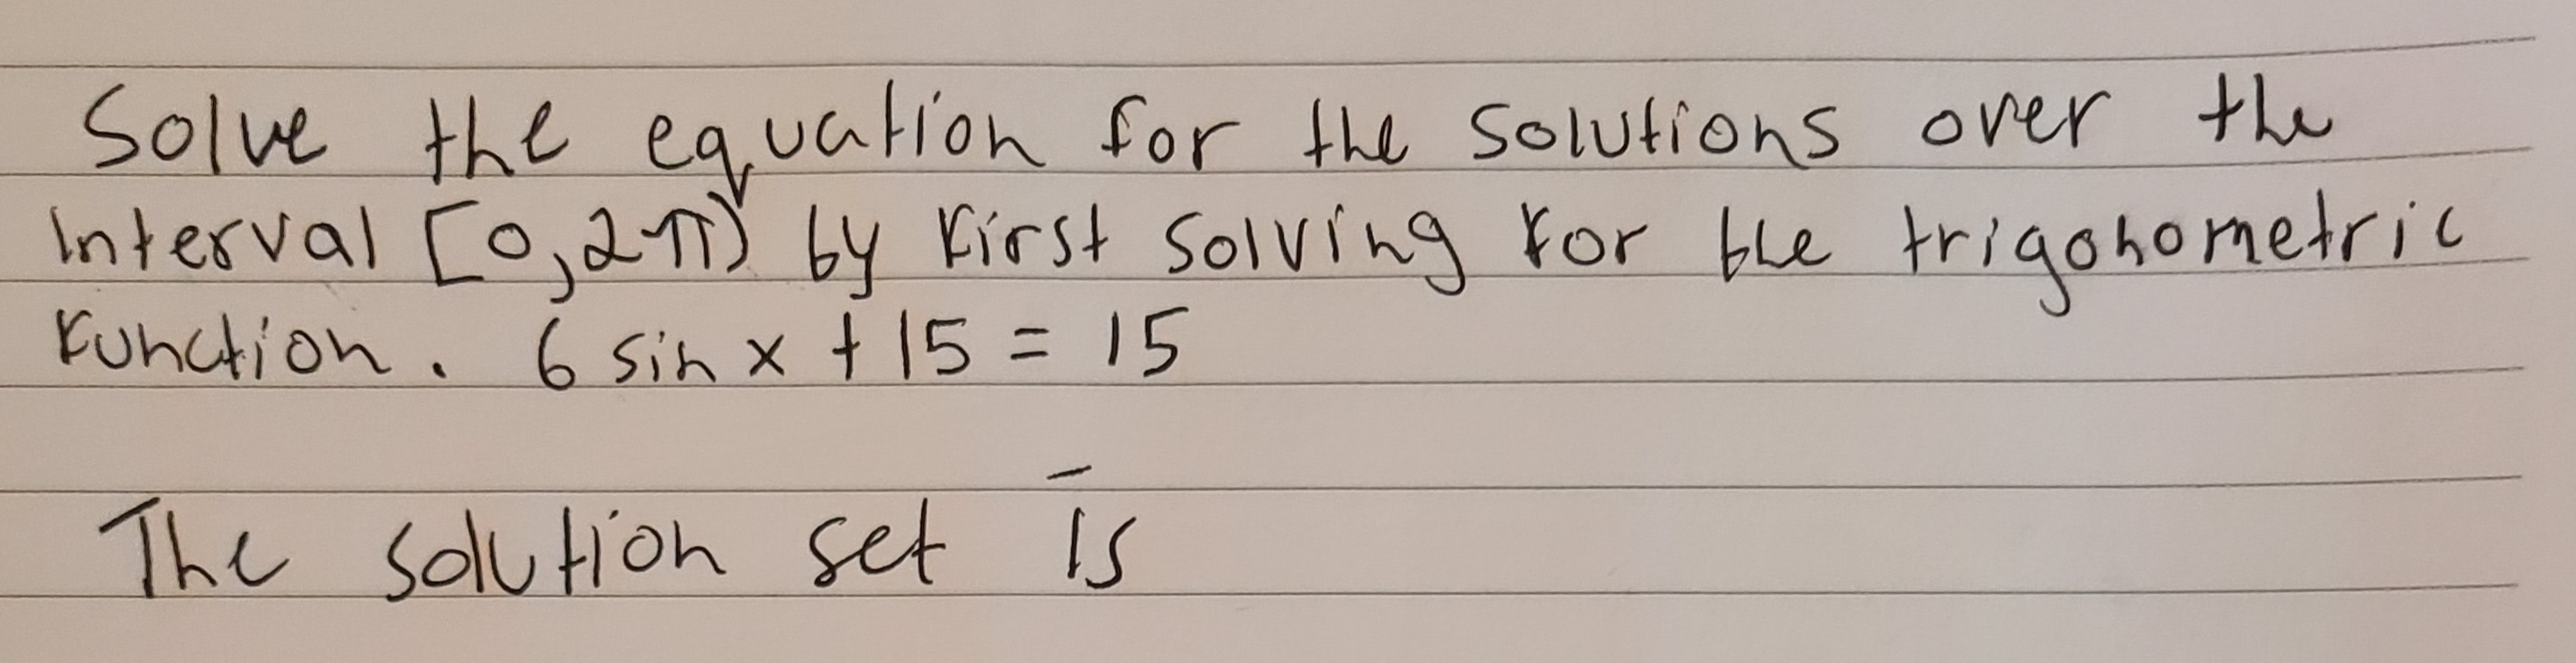 Solve the equation for the solutions over the
interval [0,2π) by first solving for the trigonometric
function. 6 sin x + 15 = 15
The solution set is